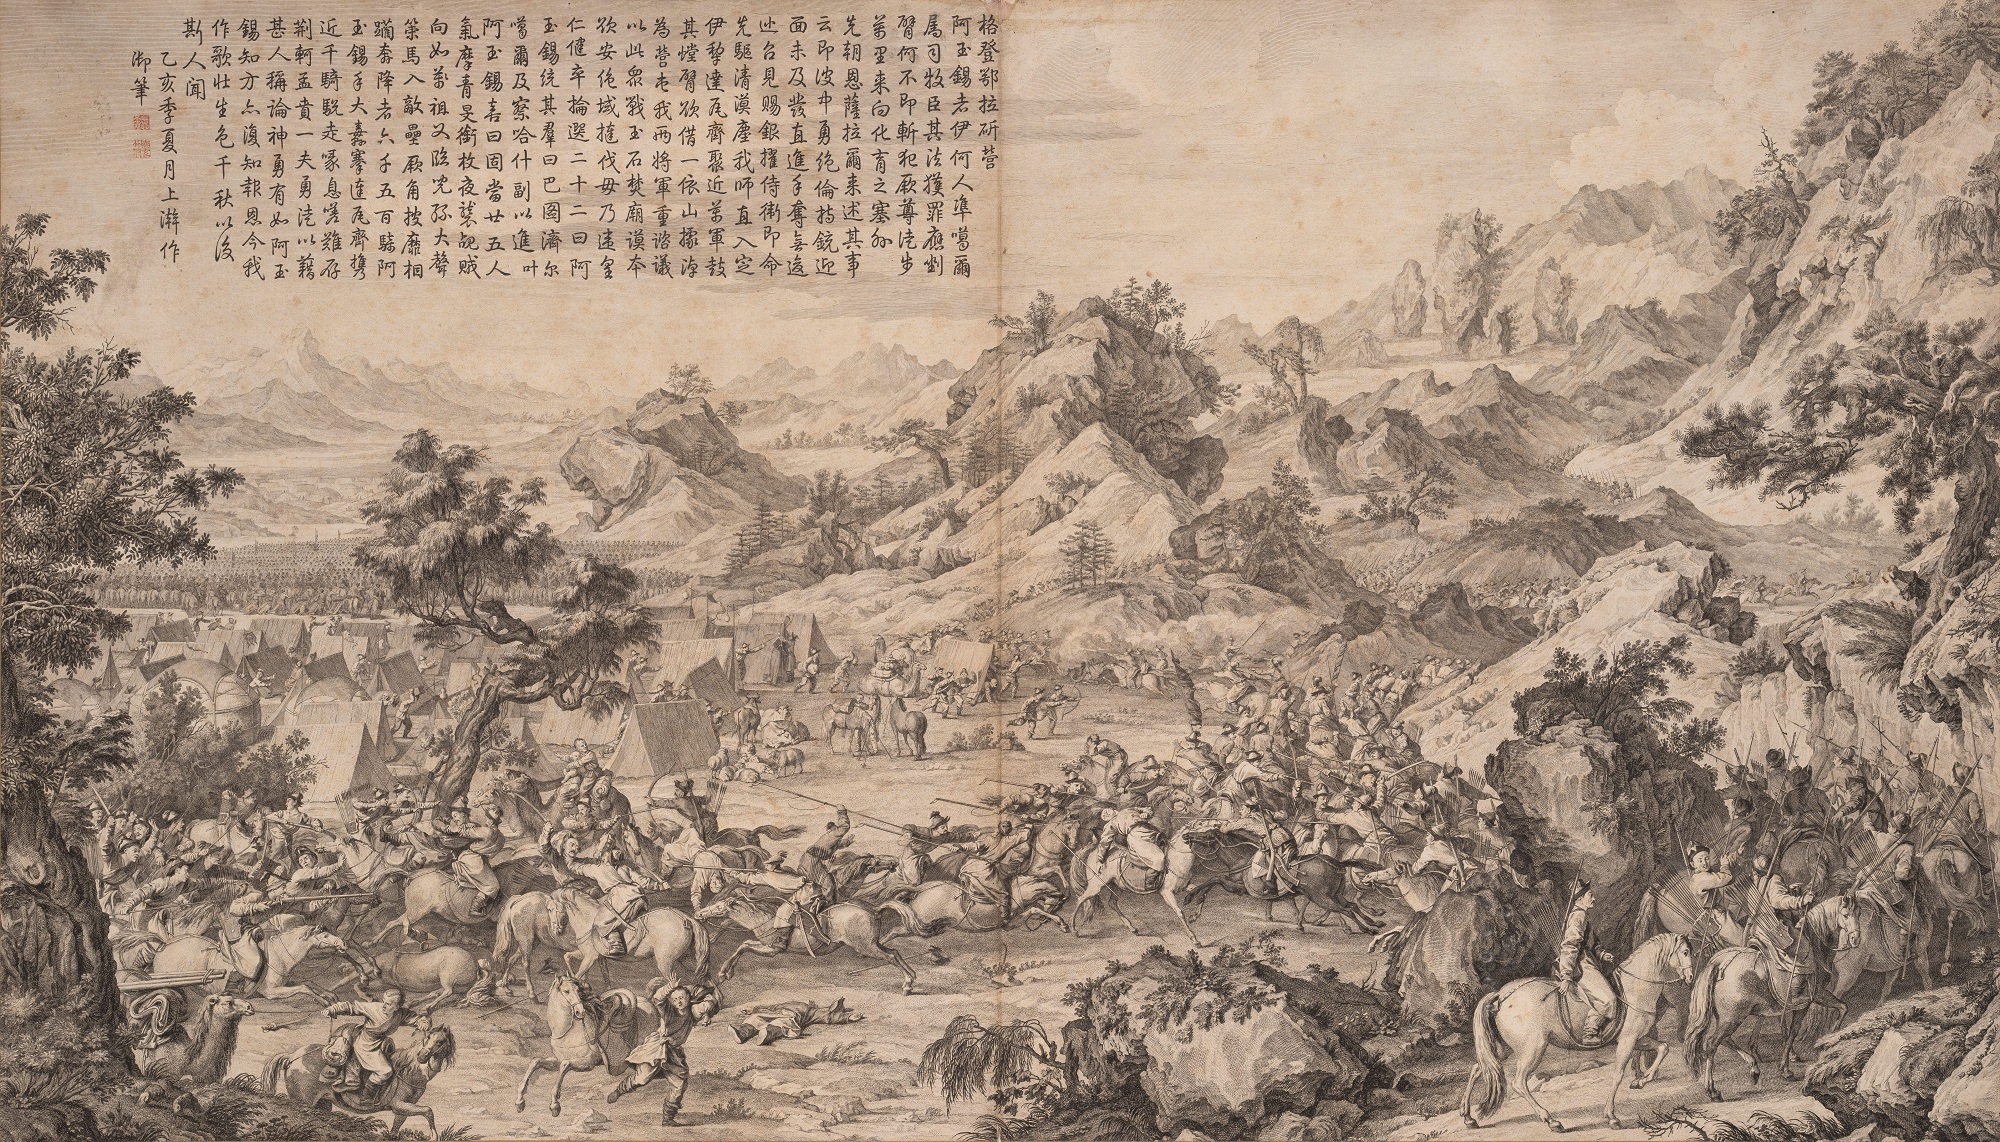 格登鄂拉斫營
阿玉錫者伊何人準噶爾
属司牧臣其法獲罪應剉
臂何不即斬犯厥尊徒步
萬里来向化育之塞外
先朝恩薩拉爾来述其事
云即彼中勇絶倫持銃迎
面未及發直進手奪無逡
巡召見賜銀擢侍衛即命
先驅清漠塵我師直入定
伊犂達瓦齊聚近萬軍鼓
其螳臂欲借一依山據淖
為營屯我兩將軍重諮議
以此眾戰玉石焚廟謨本
欲安绝域撻伐毋乃違皇
仁健卒掄選二十二曰阿
玉錫統其羣曰巴图濟尔
噶爾及察哈什副以進叶
阿玉錫喜曰固當廿五人
氣摩青旻銜枚夜襲覘賊
向如萬祖父臨兒孫大聲
策馬入敵壘厥角披靡相
躏奔降者六千五百騎阿
玉錫手大纛搴達瓦齊携
近千騎駾走喙息嗟難存
荆軻孟賁一夫勇徒以藉
甚人稱論神勇有如阿玉
錫知方亦復知報恩今我
作歌壮生色千秋以後
斯人聞
乙亥季夏月上澣作
御筆